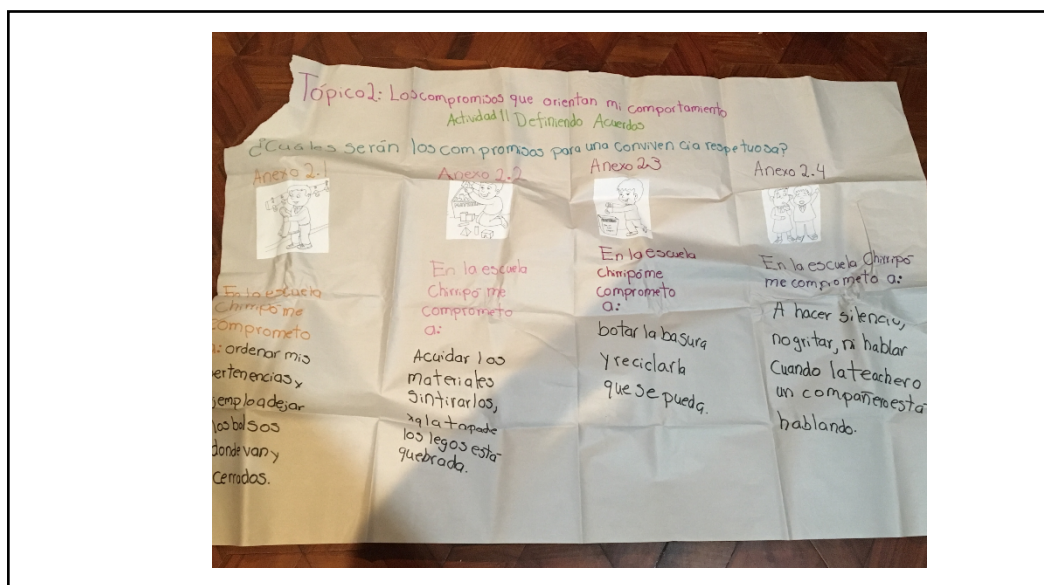 Tópico 2: Los compromisos que orientan mi comportamiento
Actividad 11 Definiendo Acuerdos
¿Cuáles serán los compromisos para una convivencia respetuosa?
Anexo 2.1
En la escuela
Chirripó me
comprometo
a: ordenar mis
ertenencias,
jemplo a dejar
los bolsos
donde van y
cerrados.
Anexo 2.2
En la escuela
Chirripó me
comprometo
a:
A cuidar los
materiales
sin tirarlos,
la tapa de
los legos está
quebrada.
Anexo 2.3
En la escuela
Chirripó me
comprometo
a:
botar la basura
y reciclar la
que se pueda.
Anexo 2.4
En la escuela Chirripó
me comprometo a:
A hacer silencio,
no gritar, ni hablar
cuando la teacher o
un compañero está
hablando.